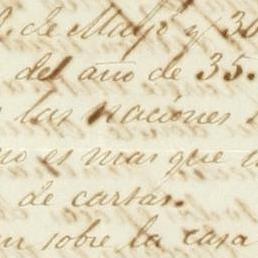 de Mayo y 30
del año de 35.
las naciones
no es mas que
de cartas.
sobre la casa